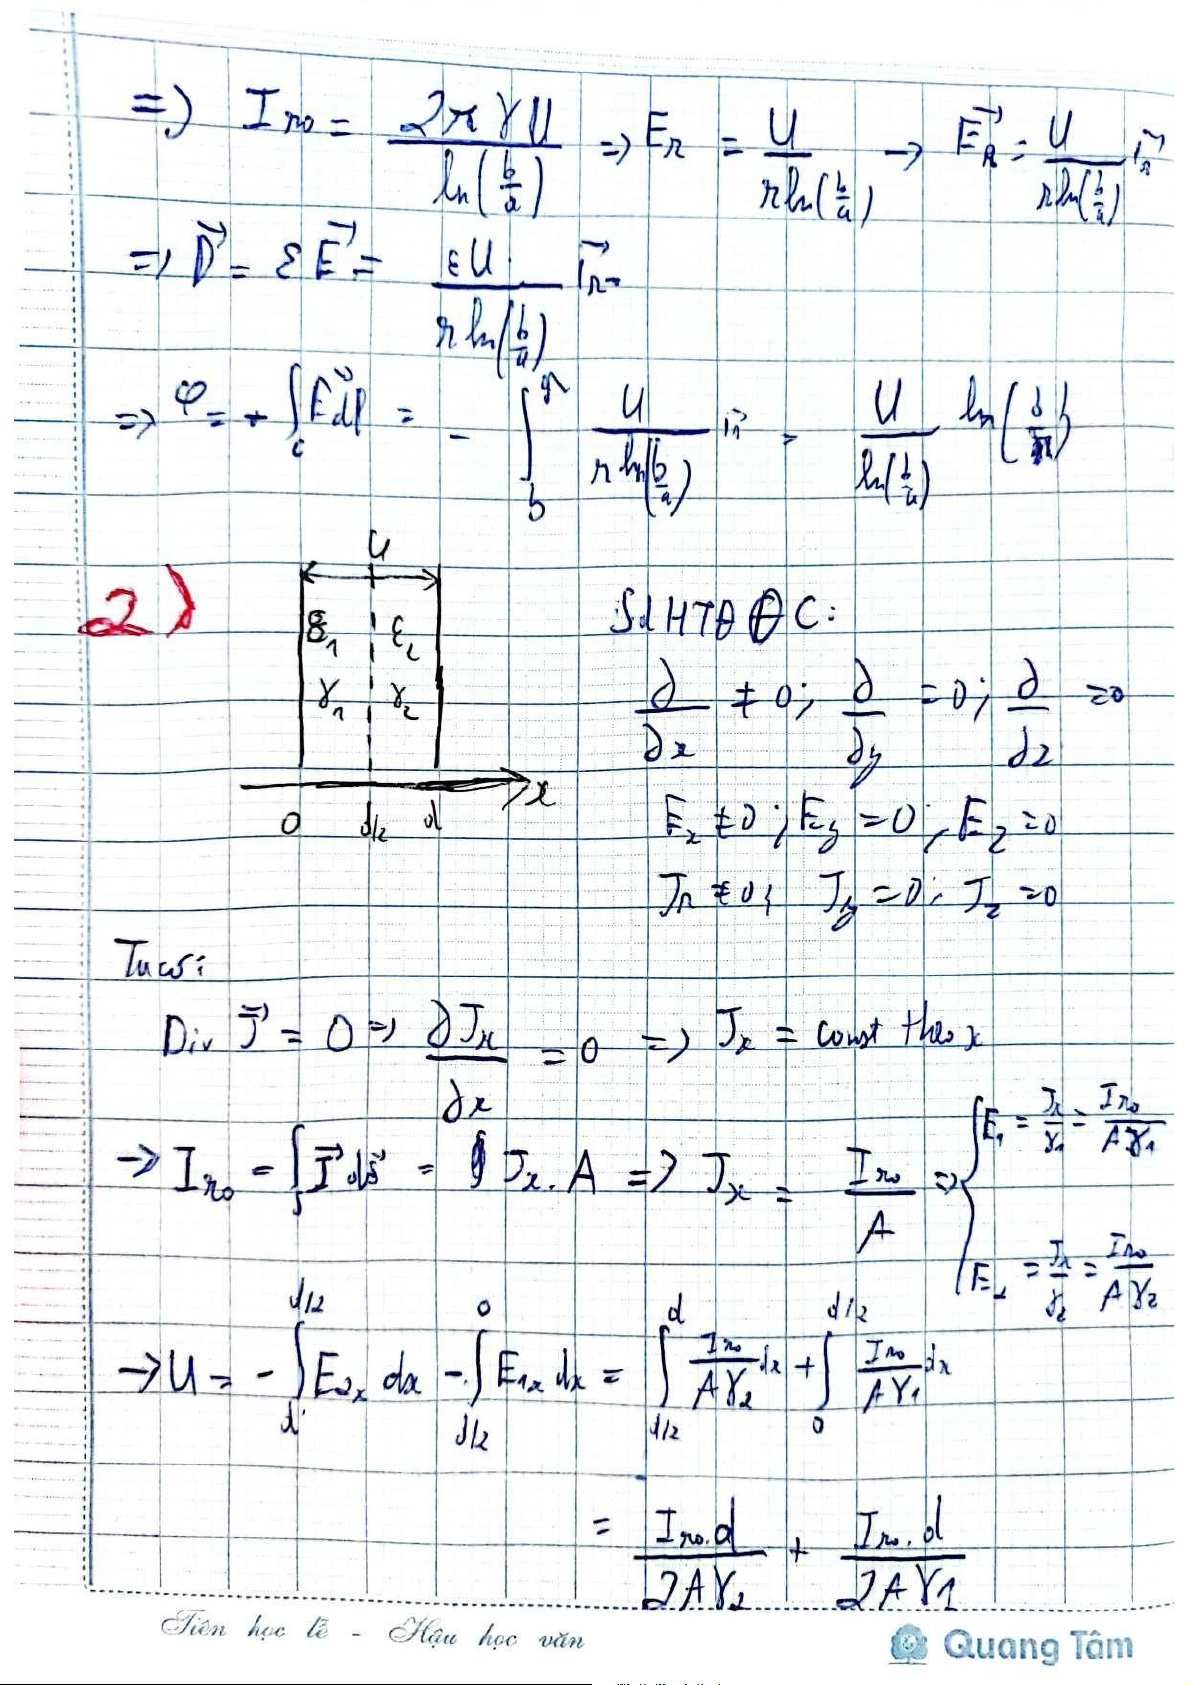 => I_{rò} = \frac{2πγU}{ln(\frac{b}{a})} => E_r = \frac{U}{r ln(\frac{b}{a})} → \vec{E_r} = \frac{U}{r ln(\frac{b}{a})} \vec{i_r}
=> \vec{D} = ε\vec{E} = \frac{εU}{r ln(\frac{b}{a})} \vec{i_r}
=> φ = - ∫_c \vec{E} dl = - ∫_b^r \frac{U}{r ln(\frac{b}{a})} \vec{i_r} = \frac{U}{ln(\frac{b}{a})} ln(\frac{b}{r})
2)
U
ε_1 ε_2
γ_1 γ_2
0 d/2 d x
Sd HTĐ ĐC:
\frac{∂}{∂x} ≠ 0; \frac{∂}{∂y} = 0; \frac{∂}{∂z} = 0
E_x ≠ 0; E_y = 0; E_z = 0
J_x ≠ 0; J_y = 0; J_z = 0
Ta có:
Div \vec{J} = 0 => \frac{∂J_x}{∂x} = 0 => J_x = const theo x
→ I_{rò} = ∫_s \vec{J} d\vec{s} = J_x.A => J_x = \frac{I_{rò}}{A} => { E_1 = \frac{J_x}{γ_1} = \frac{I_{rò}}{Aγ_1}
E_2 = \frac{J_x}{γ_2} = \frac{I_{rò}}{Aγ_2}
→ U = - ∫_d^{d/2} E_{2x} dx - ∫_{d/2}^0 E_{1x} dx = ∫_{d/2}^d \frac{I_{rò}}{Aγ_2} dx + ∫_0^{d/2} \frac{I_{rò}}{Aγ_1} dx
= \frac{I_{rò}.d}{2Aγ_2} + \frac{I_{rò}.d}{2Aγ_1}
Tiên học lễ - Hậu học văn
Quang Tâm